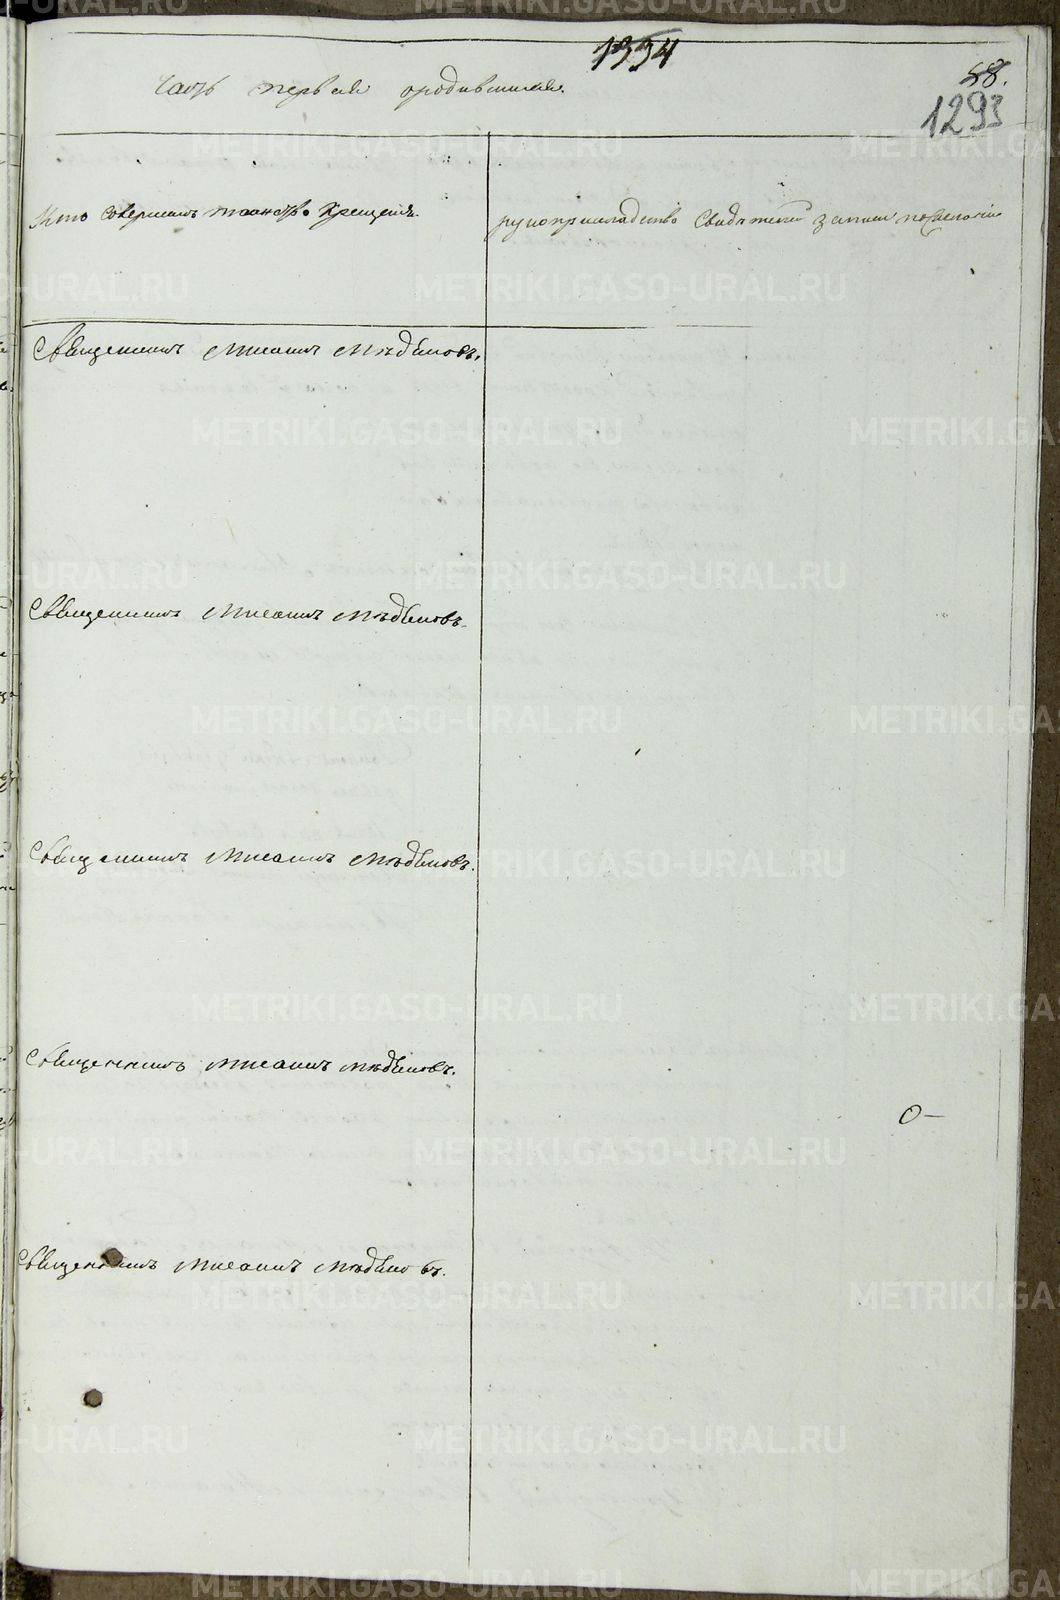 1334
58.
1293
Часть первая о родившихся
Кто совершалъ таинство крещенiя.
рукоприкладство свидѣтелей записи по желанiю
Священникъ Михаилъ Мѣдѣновъ.
Священникъ Михаилъ Мѣдѣновъ.
Священникъ Михаилъ Мѣдѣновъ.
Священникъ Михаилъ Мѣдѣновъ.
Священникъ Михаилъ Мѣдѣновъ.
METRIKI.GASO-URAL.RU